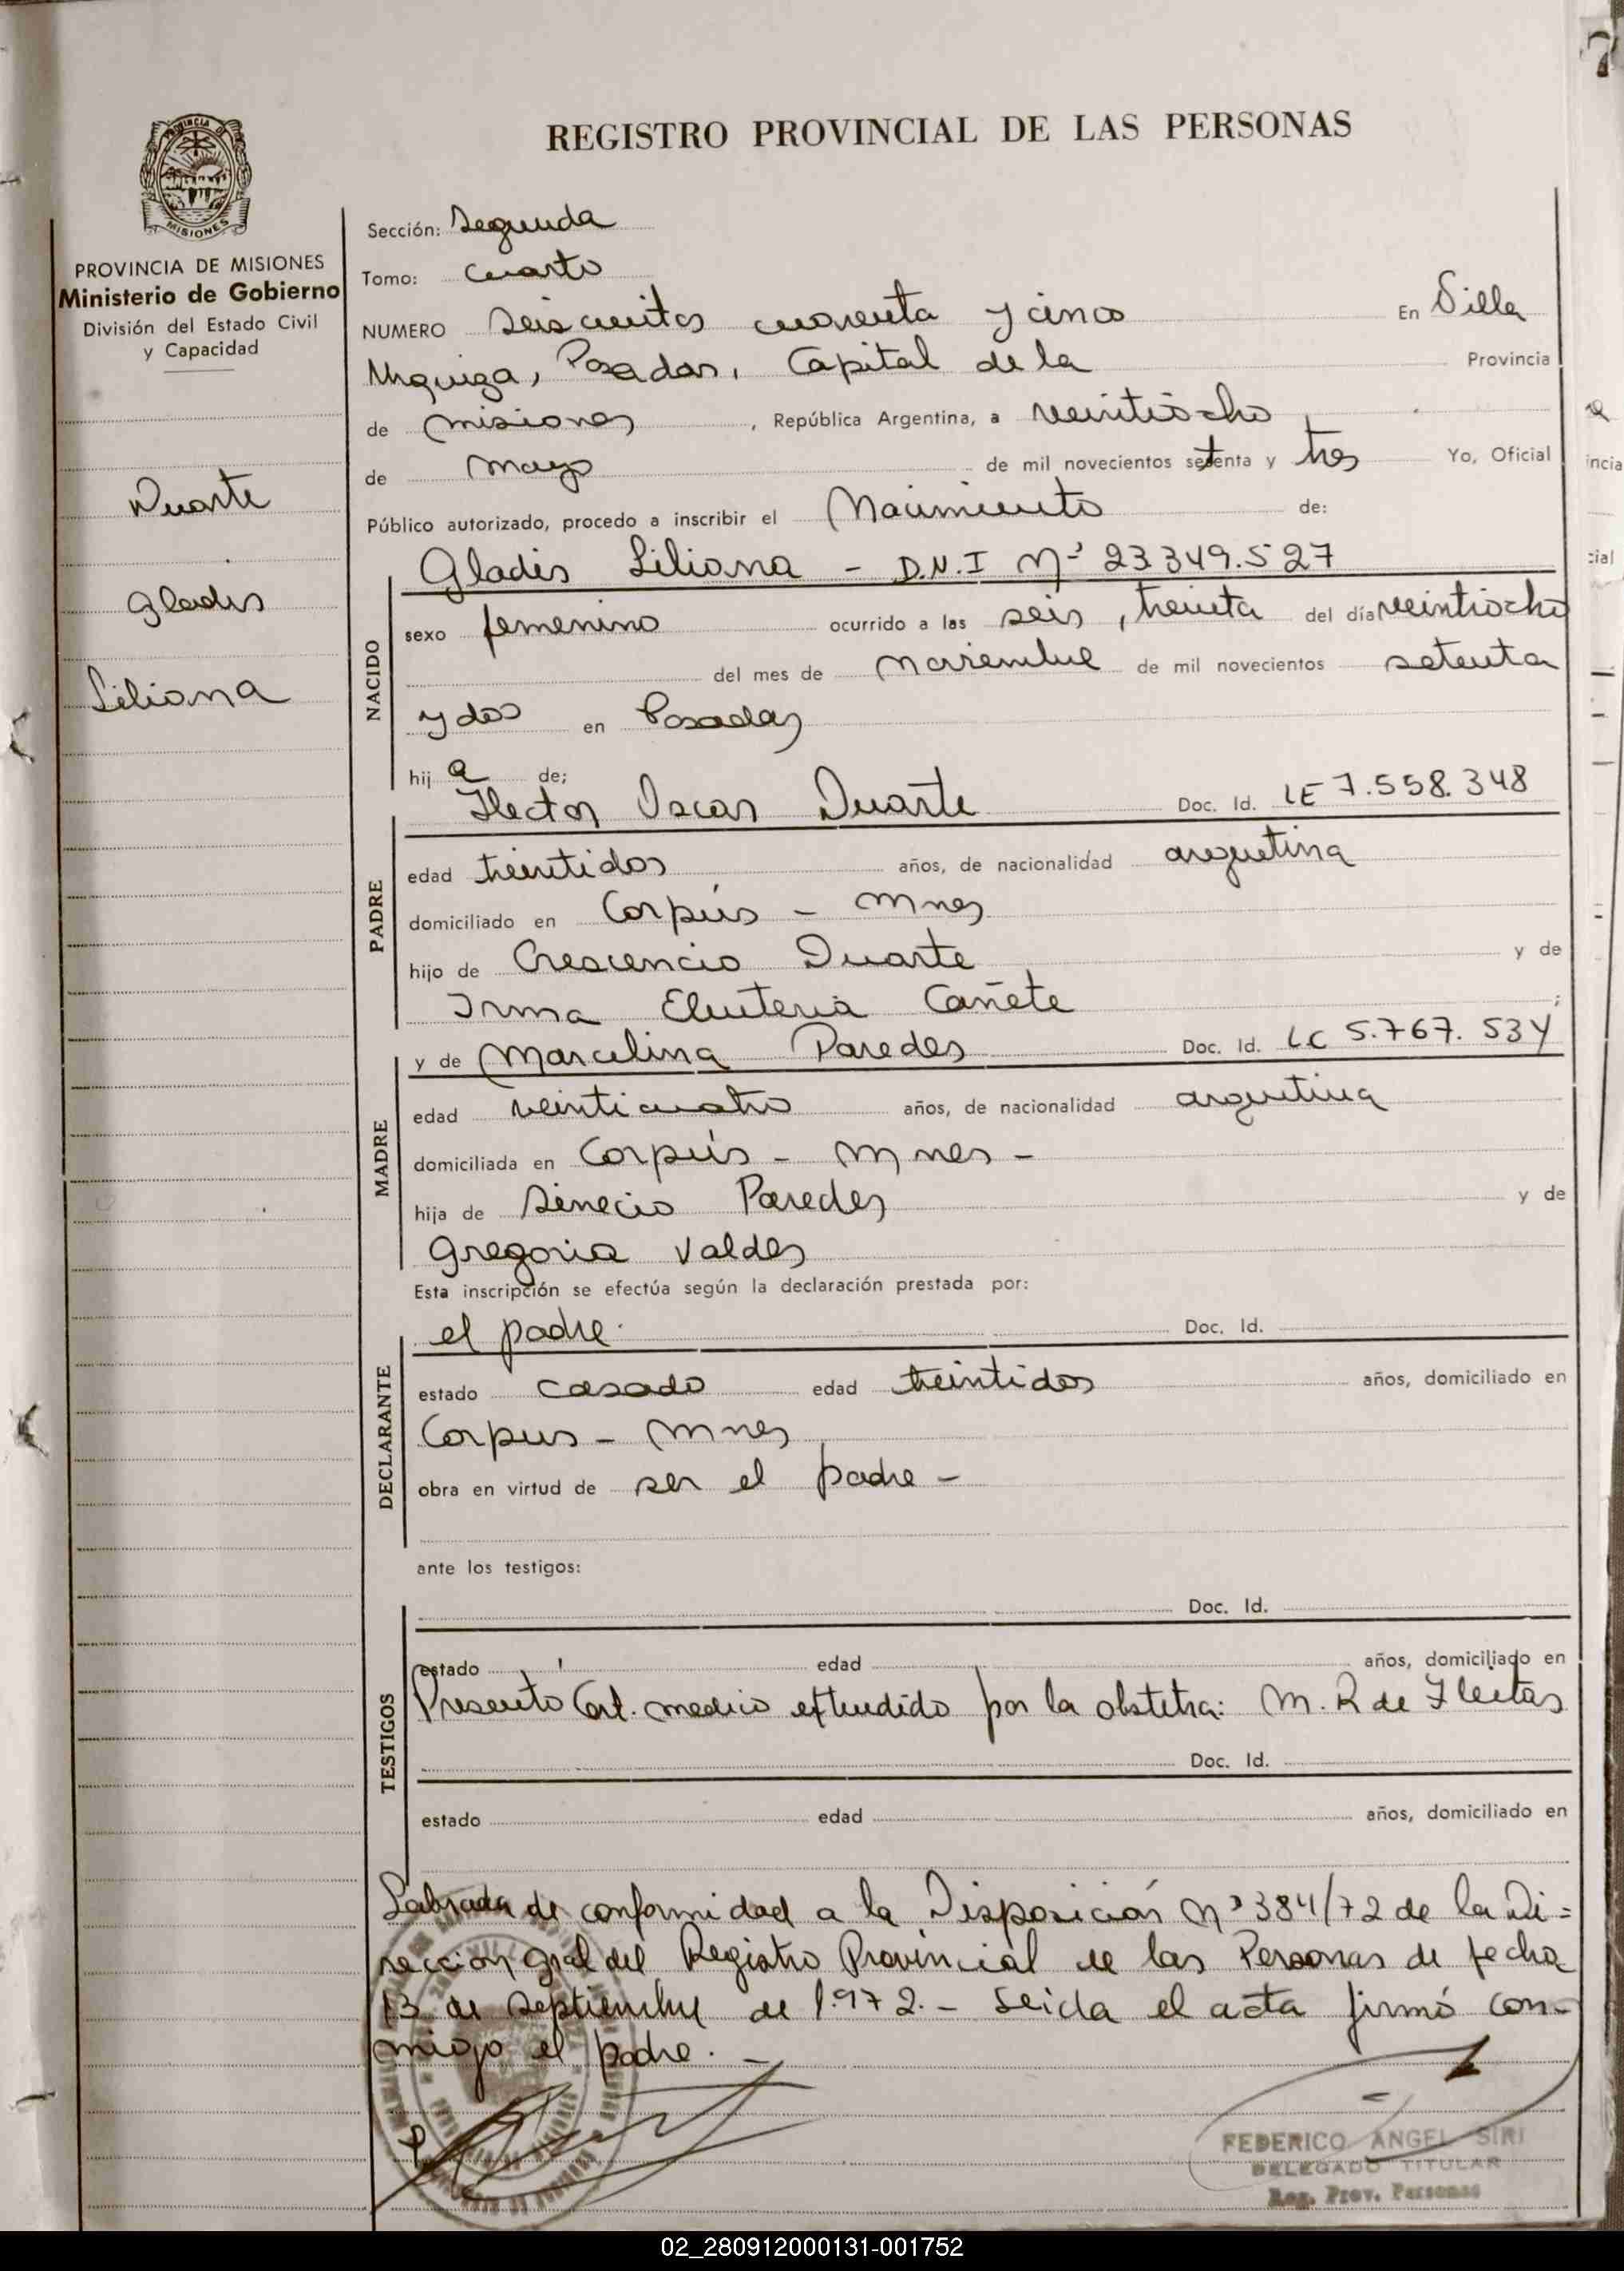 REGISTRO PROVINCIAL DE LAS PERSONAS
PROVINCIA DE MISIONES
Ministerio de Gobierno
División del Estado Civil
y Capacidad
Duarte
Gladis
Liliana
Sección: Segunda
Tomo: Cuarto
NUMERO Seiscientos cuarenta y cinco En Villa
Urquiza, Posadas, Capital de la Provincia
de Misiones, República Argentina, a veintiocho
de Mayo de mil novecientos setenta y tres Yo, Oficial
Público autorizado, procedo a inscribir el Nacimiento de:
Gladis Liliana - D.N.I Nº 23349.527
NACIDO
sexo femenino ocurrido a las seis, treinta del día veintiocho
del mes de Noviembre de mil novecientos setenta
y dos en Posadas
hij a de;
Hector Oscar Duarte Doc. Id. LE 7.558.348
PADRE
edad treintidos años, de nacionalidad argentina
domiciliado en Corpús - Mnes
hijo de Crescencio Duarte y de
Irma Eleuteria Cañete ;
y de Marcelina Paredes Doc. Id. LC 5.767.534
MADRE
edad veinticuatro años, de nacionalidad argentina
domiciliada en Corpús - Mnes -
hija de Sinecio Paredes y de
Gregoria Valdes
Esta inscripción se efectúa según la declaración prestada por:
el padre. Doc. Id.
DECLARANTE
estado casado edad treintidos años, domiciliado en
Corpus - Mnes
obra en virtud de ser el padre -
ante los testigos:
Doc. Id.
TESTIGOS
estado edad años, domiciliado en
Presento Cert. medico extendido por la obstetra: M. R de Fleitas
Doc. Id.
estado edad años, domiciliado en
Labrada de conformidad a la Disposición Nº 384/72 de la Di=
rección Gral del Registro Provincial de las Personas de fecha
13 de Septiembre de 1.972.- Leida el acta firmó con-
migo el padre. -
FEDERICO ANGEL SIRI
DELEGADO TITULAR
Reg. Prov. Personas
02_280912000131-001752